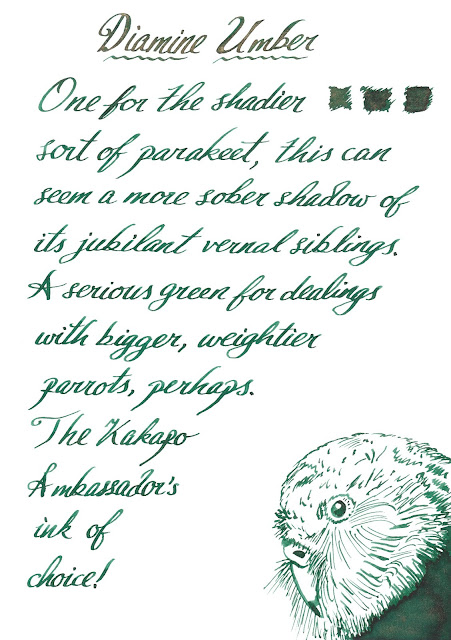 Diamine Umber
One for the shadier
sort of parakeet, this can
seem a more sober shadow of
its jubilant vernal siblings.
A serious green for dealings
with bigger, weightier
parrots, perhaps.
The Kakapo
Ambassador's
ink of
choice!